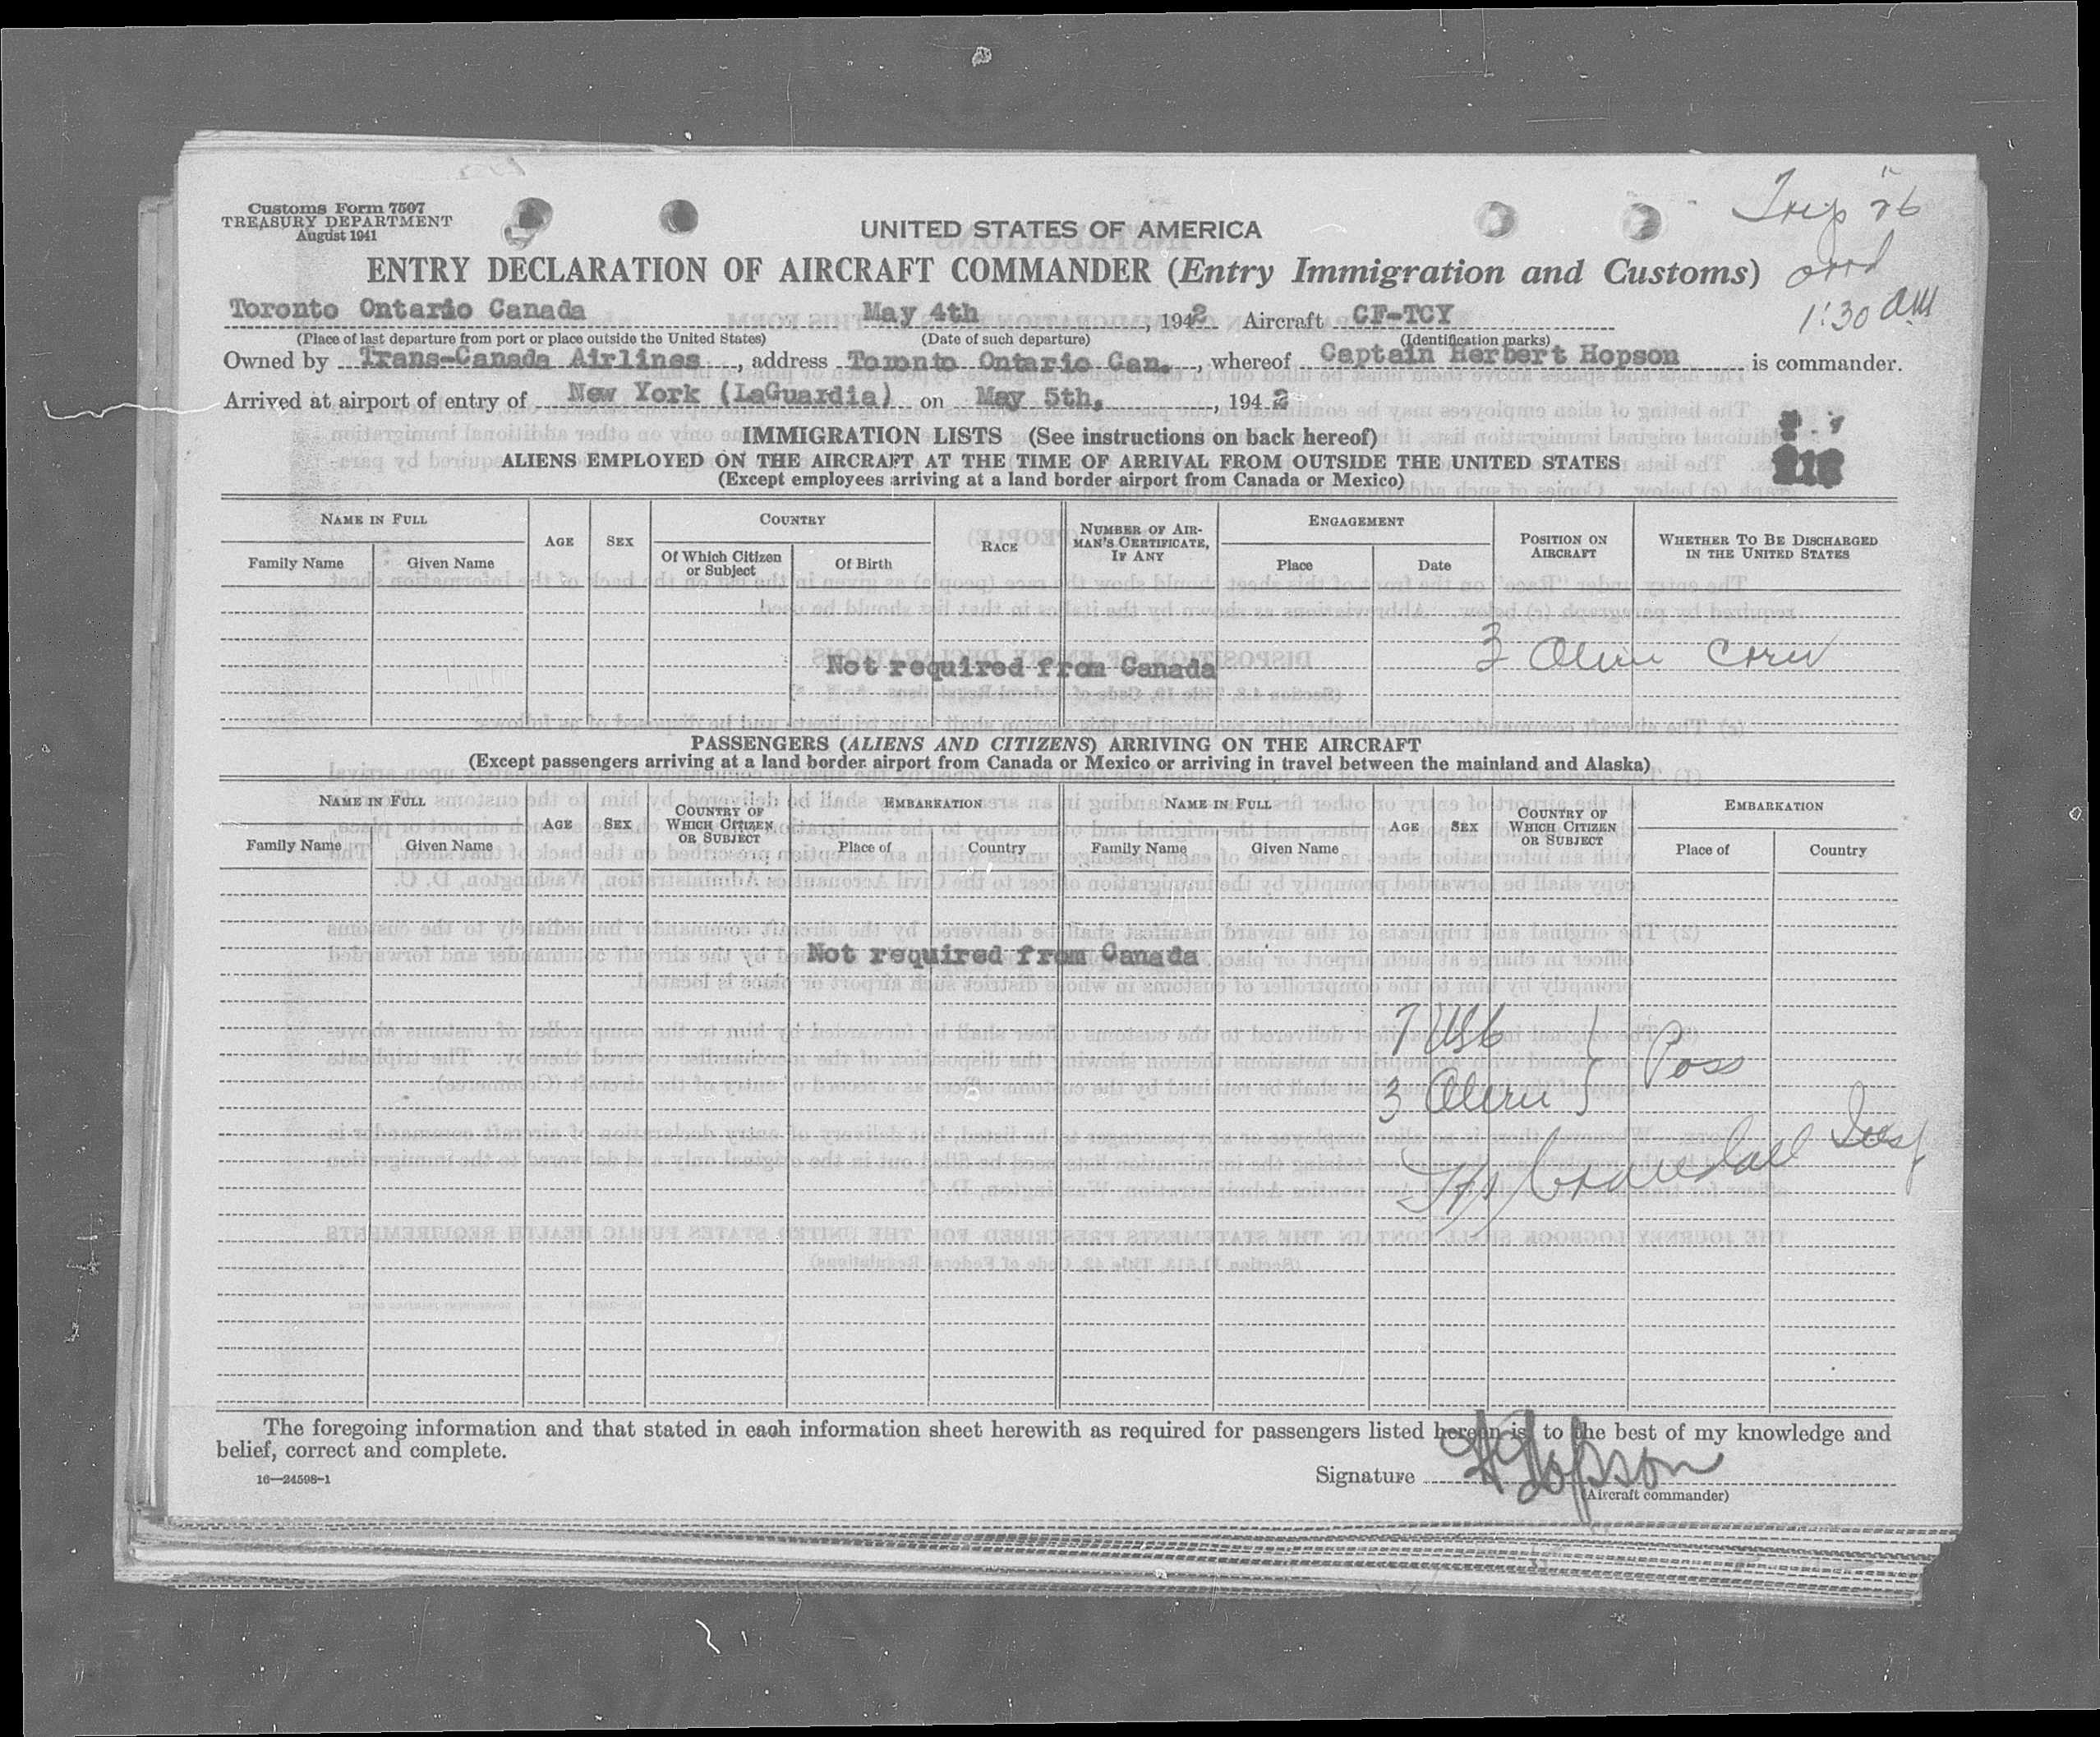 Customs Form 7507
TREASURY DEPARTMENT
August 1941
UNITED STATES OF AMERICA
Trip 26
arrd
1:30 AM
ENTRY DECLARATION OF AIRCRAFT COMMANDER (Entry Immigration and Customs)
Toronto Ontario Canada May 4th, 1942 Aircraft CF-TCY
(Place of last departure from port or place outside the United States) (Date of such departure) (Identification marks)
Owned by Trans-Canada Airlines, address Toronto Ontario Can., whereof Captain Herbert Hopson is commander.
Arrived at airport of entry of New York (LaGuardia) on May 5th, 1942
IMMIGRATION LISTS (See instructions on back hereof)
ALIENS EMPLOYED ON THE AIRCRAFT AT THE TIME OF ARRIVAL FROM OUTSIDE THE UNITED STATES
(Except employees arriving at a land border airport from Canada or Mexico)
NAME IN FULL
Family Name Given Name
AGE
SEX
COUNTRY
Of Which Citizen or Subject
Of Birth
RACE
NUMBER OF AIRMAN'S CERTIFICATE, IF ANY
ENGAGEMENT
Place Date
POSITION ON AIRCRAFT
WHETHER TO BE DISCHARGED IN THE UNITED STATES
Not required from Canada
3 Alien Crew
PASSENGERS (ALIENS AND CITIZENS) ARRIVING ON THE AIRCRAFT
(Except passengers arriving at a land border airport from Canada or Mexico or arriving in travel between the mainland and Alaska)
NAME IN FULL
Family Name Given Name
AGE
SEX
COUNTRY OF WHICH CITIZEN OR SUBJECT
EMBARKATION
Place of Country
NAME IN FULL
Family Name Given Name
AGE
SEX
COUNTRY OF WHICH CITIZEN OR SUBJECT
EMBARKATION
Place of Country
Not required from Canada
7 USC
3 Alien } Pass
Crandall Insp
The foregoing information and that stated in each information sheet herewith as required for passengers listed hereon is, to the best of my knowledge and
belief, correct and complete.
16—24598-1
Signature H Hopson
(Aircraft commander)